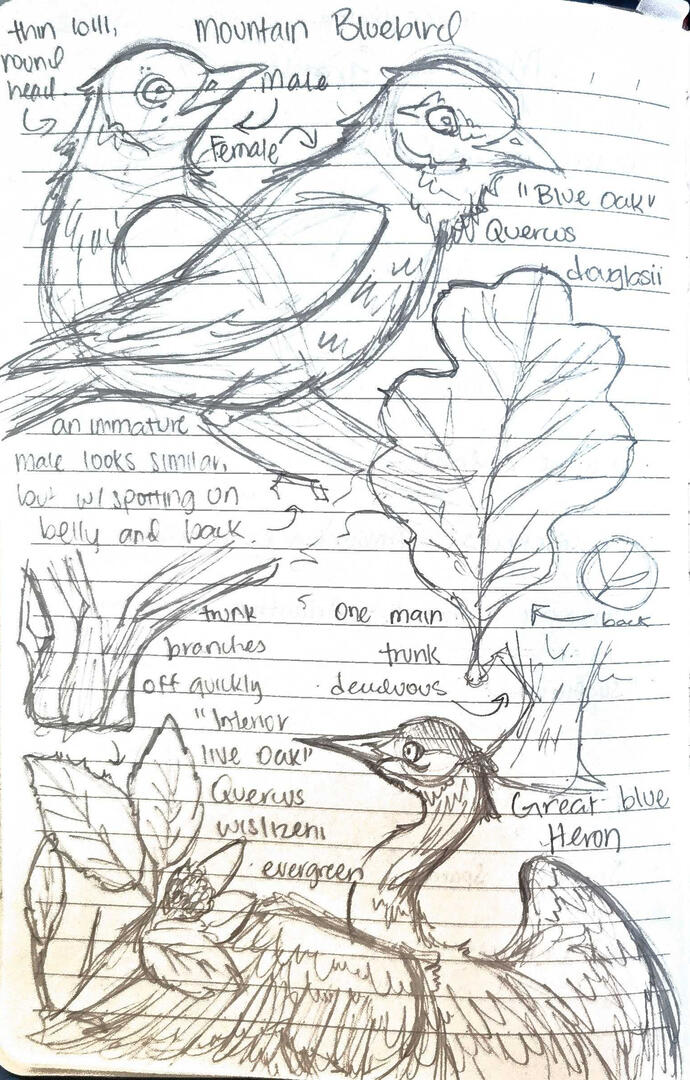 Mountain Bluebird
thin bill,
round
head
Male
Female
"Blue oak"
Quercus
douglasii
an immature
male looks similar,
but w/ spotting on
belly and back
trunk
branches
off quickly
"Interior
live oak"
Quercus
wislizeni
evergreen
One main
trunk
deciduous
back
Great blue
Heron